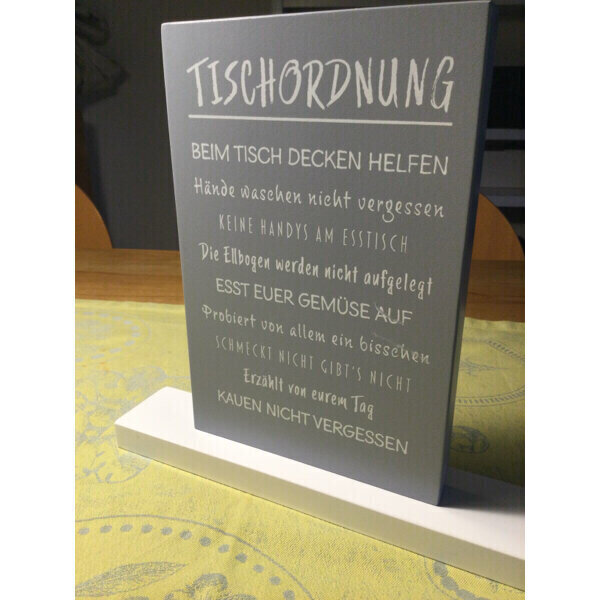 TISCHORDNUNG
BEIM TISCH DECKEN HELFEN
Hände waschen nicht vergessen
KEINE HANDYS AM ESSTISCH
Die Ellbogen werden nicht aufgelegt
ESST EUER GEMÜSE AUF
Probiert von allem ein bisschen
SCHMECKT NICHT GIBT'S NICHT
Erzählt von eurem Tag
KAUEN NICHT VERGESSEN